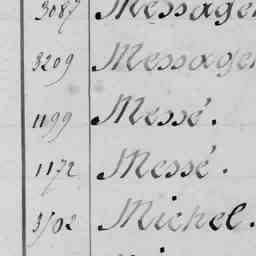 3087 Messager
3209 Messager
1199 Messé.
1172 Messé.
3102 Michel.